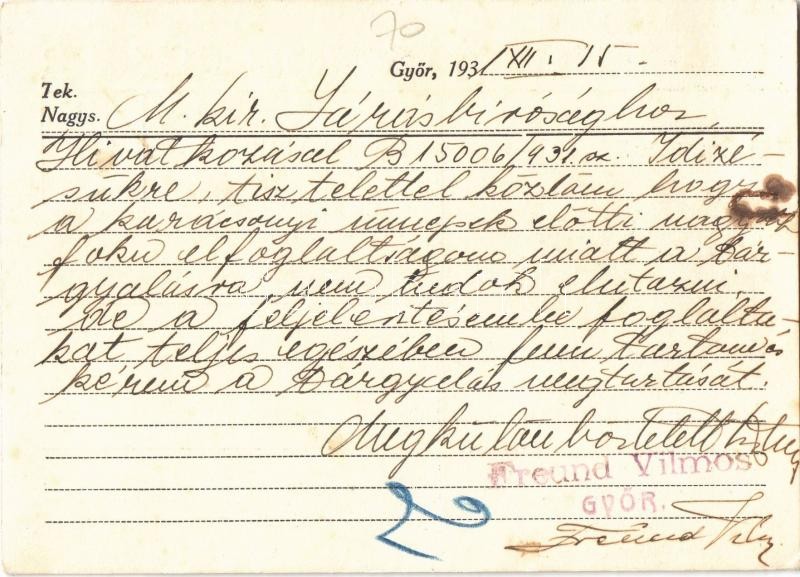 70
Győr, 1931 XII. 15.
Tek.
Nagys. M. kir. Járásbirósághoz
Hivatkozásal B 15006/931. sz. Idizé-
sükre, tisztelettel közlöm hogy
a karácsonyi ünnepek előtti nagy
foku elfoglaltságom miatt a tár-
gyalásra nem tudok elutazni,
de a feljelentésembe foglaltu-
kat teljes egészében fenn tartom és
kérem a tárgyalás megtartását.
Megkülönböztetett
Freund Vilmos
GYŐR.
Freund